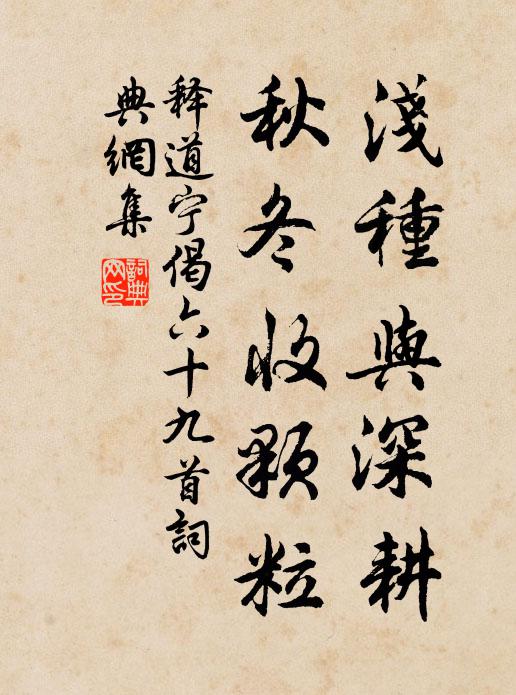 淺種與深耕
秋冬收顆粒
释道宁偈六十九首詞
典網集
詞典
网印